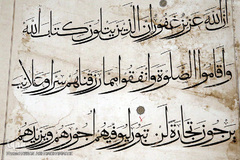 ان الله عزيز غفور ان الذين يتلون كتاب الله
واقاموا الصلوة وانفقوا مما رزقناهم سرا وعلانية
يرجون تجارة لن تبور ليوفيهم اجورهم ويزيدهم